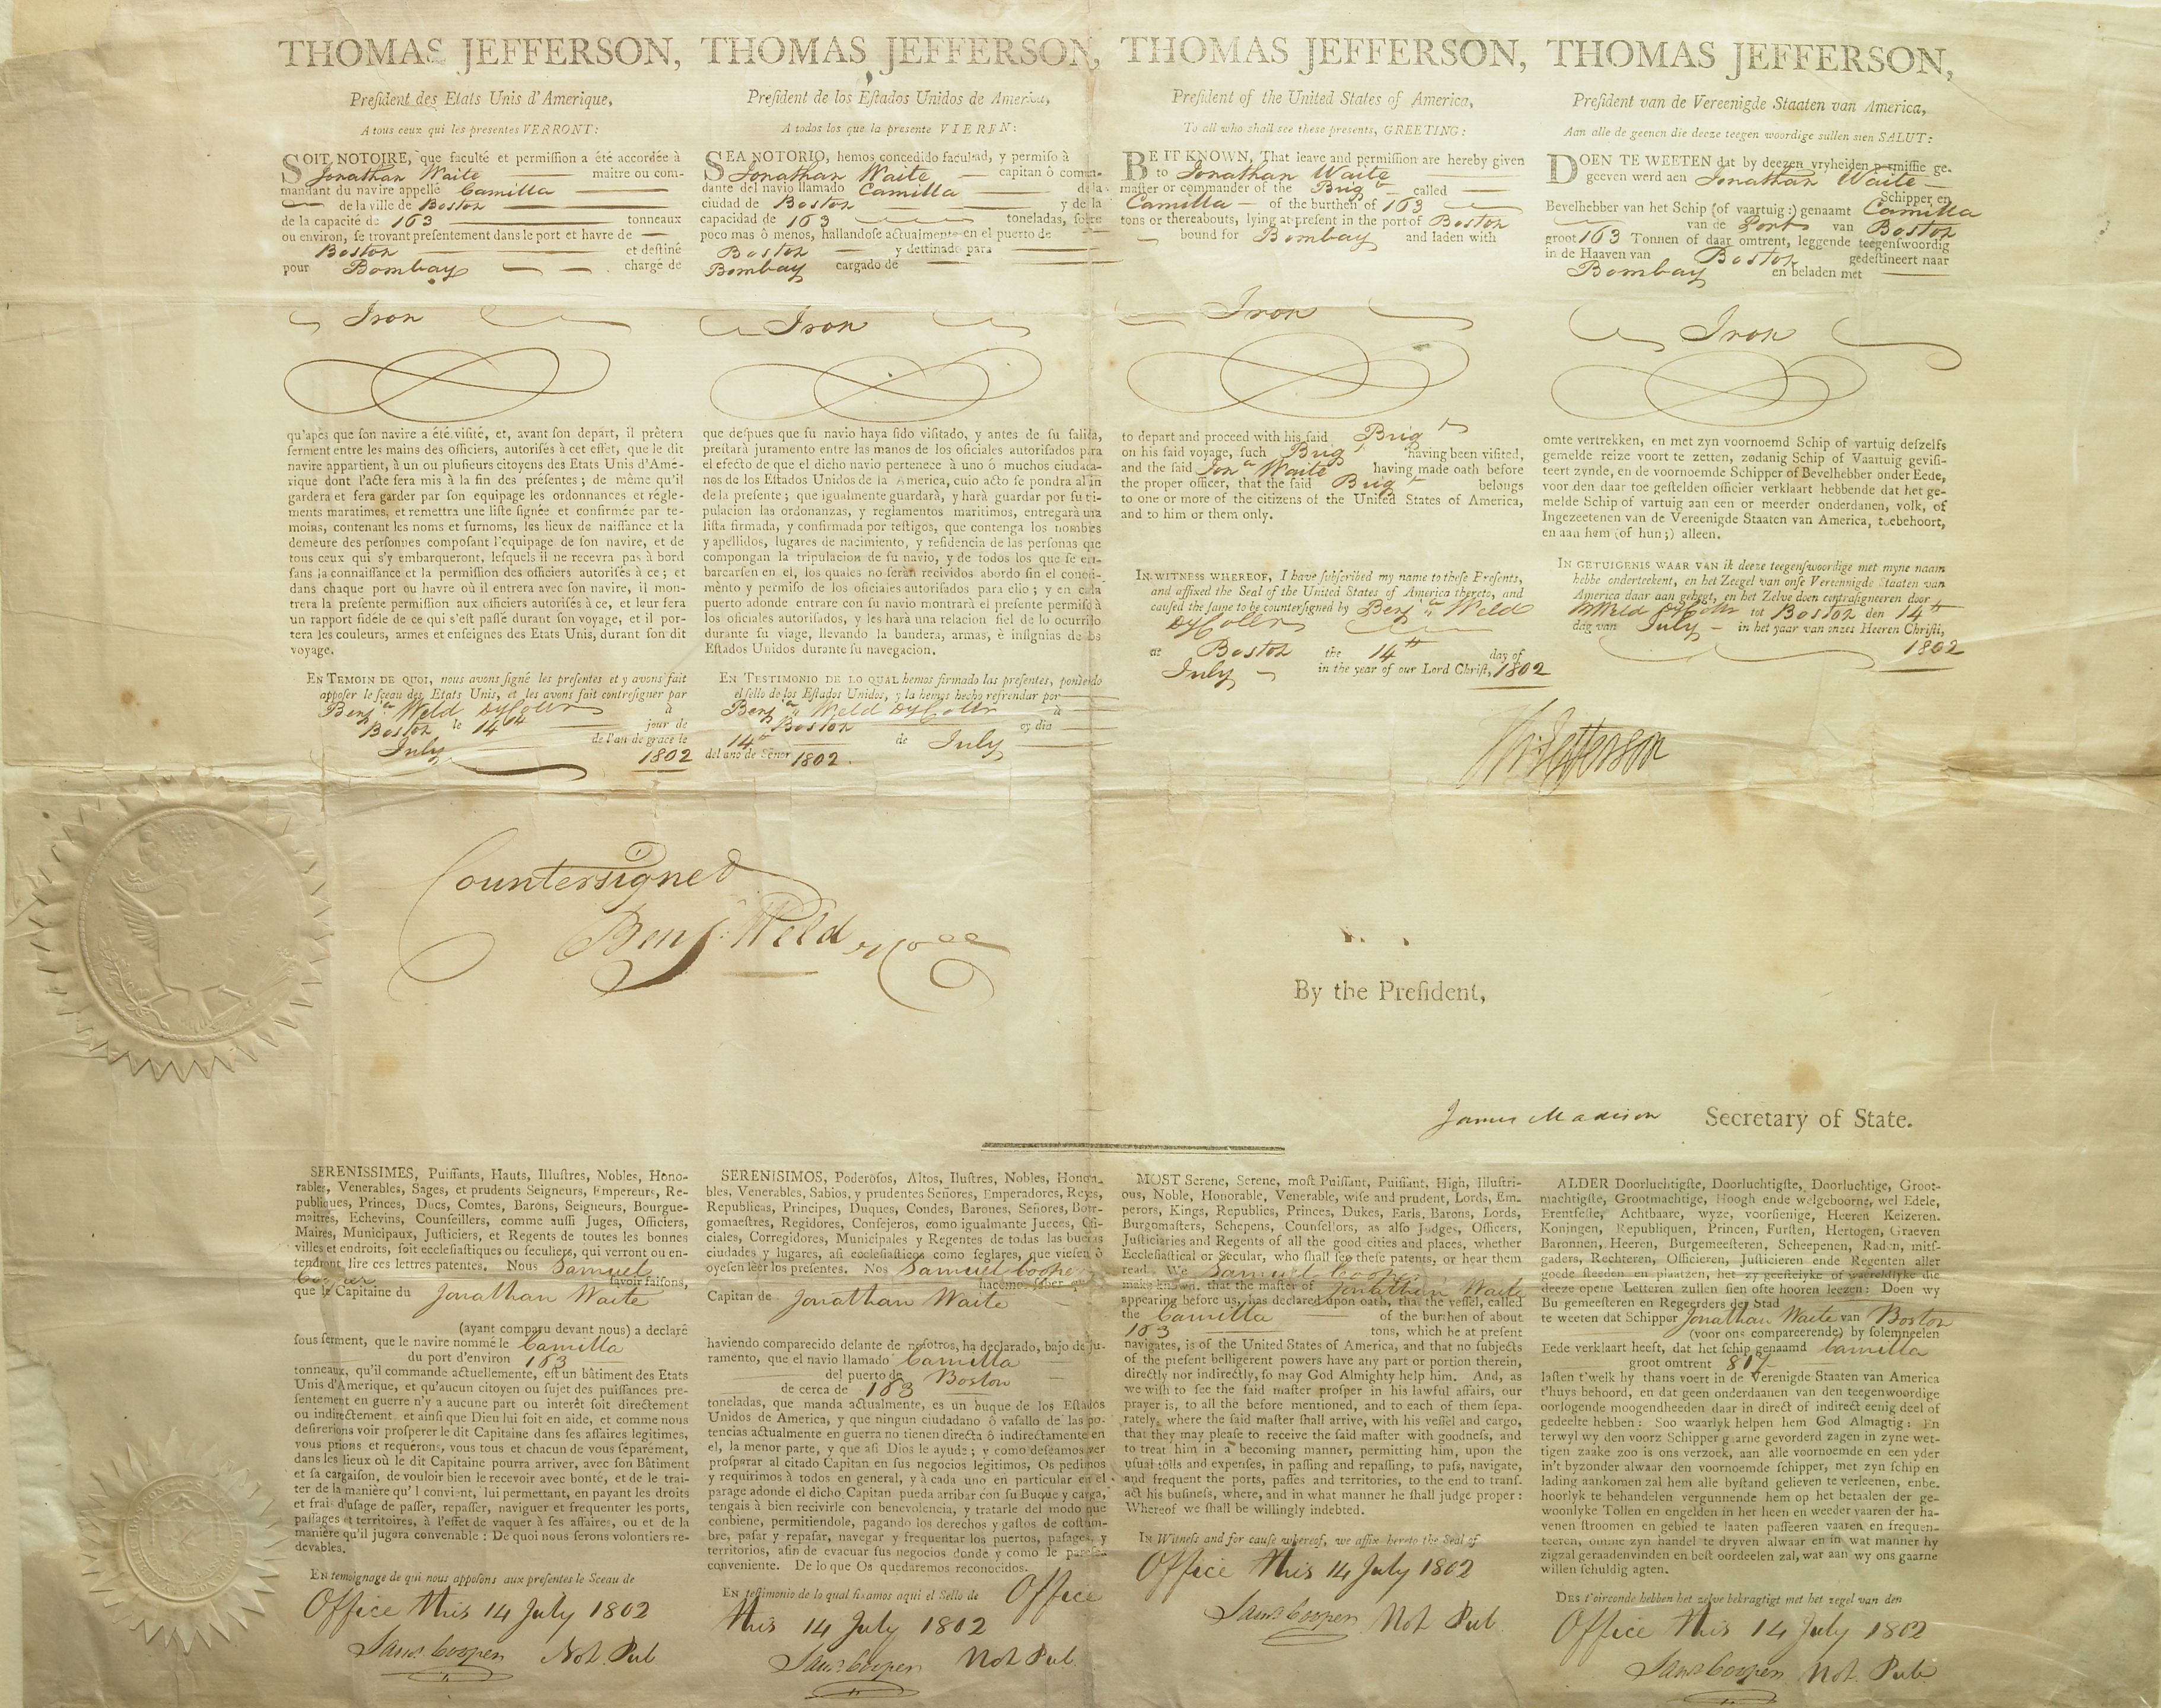 THOMAS JEFFERSON,
President des Etats Unis d'Amerique,
A tous ceux qui les presentes VERRONT:
SOIT NOTOIRE, que faculté et permission a été accordée à
Jonathan Waite maitre ou com-
mandant du navire appellé Camilla
de la ville de Boston
de la capacité de 163 tonneaux
ou environ, se trovant presentement dans le port et havre de
Boston et destiné
pour Bombay chargé de
Iron
qu'apés que son navire a été visité, et, avant son depart, il prêtera
serment entre les mains des officiers, autorisés à cet effet, que le dit
navire appartient, à un ou plusieurs citoyens des Etats Unis d'Ame-
rique dont l'acte sera mis à la fin des présentes; de même qu'il
gardera et fera garder par son equipage les ordonnances et régle-
ments maratimes, et remettra une liste signée et confirmée par te-
moins, contenant les noms et surnoms, les lieux de naissance et la
demeure des personnes composant l'equipage de son navire, et de
tous ceux qui s'y embarqueront, lesquels il ne recevra pas à bord
sans la connaissance et la permission des officiers autorisés à ce; et
dans chaque port ou havre où il entrera avec son navire, il mon-
trera la presente permission aux officiers autorisés à ce, et leur fera
un rapport fidéle de ce qui s'est passé durant son voyage, et il por-
tera les couleurs, armes et enseignes des Etats Unis, durant son dit
voyage.
EN TEMOIN DE QUOI, nous avons signé les presentes et y avons fait
apposer le sceau des Etats Unis, et les avons fait contresigner par
Benjᵃ Weld DyCollr à
Boston le 14th jour de
July de l'an de grace le
1802
THOMAS JEFFERSON,
President de los Estados Unidos de America,
A todos los que la presente VIEREN:
SEA NOTORIO, hemos concedido facultad, y permiso à
Jonathan Waite capitan ò coman-
dante del navio llamado Camilla de la
ciudad de Boston y de la
capacidad de 163 toneladas, sobre
poco mas ô menos, hallandose actualmente en el puerto de
Boston y destinado para
Bombay cargado de
Iron
que despues que su navio haya sido visitado, y antes de su salida,
prestará juramento entre las manos de los oficiales autorisados para
el efecto de que el dicho navio pertenece à uno ó muchos ciudada-
nos de los Estados Unidos de la America, cuio acto se pondra al fin
de la presente; que igualmente guardará, y hará guardar por su tri-
pulacion las ordonanzas, y reglamentos maritimos, entregará una
lista firmada, y confirmada por testigos, que contenga los nombres
y apellidos, lugares de nacimiento, y residencia de las personas que
compongan la tripulacion de su navio, y de todos los que se em-
barcarsen en el, los quales no serán recividos abordo sin el conoci-
mènto y permiso de los oficiales autorisados para elio; y en cada
puerto adonde entrare con su navio montrarà el presente permiso à
los oficiales autorisados, y les harà una relacion fiel de lo ocurrilo
durante su viage, llevando la bandera, armas, è insignias de los
Estados Unidos durante su navegacion.
EN TESTIMONIO DE LO QUAL hemos firmado las presentes, poniendo
el sello de los Estados Unidos, y la hemos hecho refrendar por
Benjᵃ Weld DyCollr à
Boston oy dia
14th de July
del ano de Señor 1802.
THOMAS JEFFERSON,
President of the United States of America,
To all who shall see these presents, GREETING:
BE IT KNOWN, That leave and permission are hereby given
to Jonathan Waite
master or commander of the Brig called
Camilla of the burthen of 163
tons or thereabouts, lying at present in the port of Boston
bound for Bombay and laden with
Iron
to depart and proceed with his said Brig
on his said voyage, such Brig having been visited,
and the said Jonᵃ Waite having made oath before
the proper officer, that the said Brig belongs
to one or more of the citizens of the United States of America,
and to him or them only.
IN WITNESS WHEREOF, I have subscribed my name to these Presents,
and affixed the Seal of the United States of America thereto, and
caused the same to be countersigned by Benjᵃ Weld
DyCollr
at Boston the 14th day of
July in the year of our Lord Christ, 1802
THOMAS JEFFERSON,
President van de Vereenigde Staaten van America,
Aan alle de geenen die deeze teegen woordige sullen sien SALUT:
DOEN TE WEETEN dat by deezen vryheiden permissie ge-
geeven werd aen Jonathan Waite
Schipper en
Bevelhebber van het Schip (of vaartuig:) genaamt Camilla
van de Port van Boston
groot 163 Tonnen of daar omtrent, leggende teegenswoordig
in de Haaven van Boston gedestineert naar
Bombay en beladen met
Iron
omte vertrekken, en met zyn voornoemd Schip of vartuig deszelfs
gemelde reize voort te zetten, zodanig Schip of Vaartuig gevisi-
teert zynde, en de voornoemde Schipper of Bevelhebber onder Eede,
voor den daar toe gestelden officier verklaart hebbende dat het ge-
melde Schip of vartuig aan een or meerder onderdanen, volk, of
Ingezeetenen van de Vereenigde Staaten van America, toebehoort,
en aan hem (of hun;) alleen.
IN GETUIGENIS WAAR VAN ik deeze teegenswoordige met myne naam
hebbe onderteekent, en het Zeegel van onse Vereenigde Staaten van
America daar aan gehegt, en het Zelve doen contrasigneeren door
BWeld DyCollr tot Boston den 14th
dag van July in het yaar van onzes Heeren Christi,
1802
Th: Jefferson
Countersigned
Benj. Weld DyColl
By the President,
James Madison Secretary of State.
SERENISSIMES, Puissants, Hauts, Illustres, Nobles, Hono-
rables, Venerables, Sages, et prudents Seigneurs, Empereurs, Re-
publiques, Princes, Ducs, Comtes, Barons, Seigneurs, Bourgue-
maitres, Echevins, Counseillers, comme aussi Juges, Officiers,
Maires, Municipaux, Justiciers, et Regents de toutes les bonnes
villes et endroits, soit ecclesiastiques ou seculiers, qui verront ou en-
tendront lire ces lettres patentes. Nous Samuel
Cooper savoir faisons,
que le Capitaine du Jonathan Waite
(ayant comparu devant nous) a declaré
sous serment, que le navire nommé le Camilla
du port d'environ 163
tonneaux, qu'il commande actuellemente, est un bâtiment des Etats
Unis d'Amerique, et qu'aucun citoyen ou sujet des puissances pre-
sentement en guerre n'y a aucune part ou interêt soit directement
ou indirectement, et ainsi que Dieu lui soit en aide, et comme nous
desirerions voir prosperer le dit Capitaine dans ses affaires legitimes,
vous prions et requérons, vous tous et chacun de vous séparément,
dans les lieux où le dit Capitaine pourra arriver, avec son Bâtiment
et sa cargaison, de vouloir bien le recevoir avec bonté, et de le trai-
ter de la manière qu'l convient, lui permettant, en payant les droits
et frais d'usage de passer, repasser, naviguer et frequenter les ports,
passages et territoires, à l'effet de vaquer à ses affaires, ou et de la
manière qu'il jugera convenable: De quoi nous serons volontiers re-
devables.
EN temoignage de qui nous apposons aux presentes le Sceau de
Office this 14 July 1802
Saml Cooper Not. Pub
SERENISIMOS, Poderosos, Altos, Ilustres, Nobles, Honora-
bles, Venerables, Sabios, y prudentes Señores, Emperadores, Reyes,
Republicas, Principes, Duques, Condes, Barones, Señores, Bour-
gomaestres, Regidores, Consejeros, como igualmante Jueces, Ofi-
ciales, Corregidores, Municipales y Regentes de todas las buenas
ciudades y lugares, asi ecclesiasticos como seglares, que viesen ô
oyesen leer los presentes. Nos Samuel Cooper
hacemos saber que
Capitan de Jonathan Waite
haviendo comparecido delante de nosotros, ha declarado, bajo de ju-
ramento, que el navio llamado Camilla
del puerto de Boston
de cerca de 163
toneladas, que manda actualmente, es un buque de los Estados
Unidos de America, y que ningun ciudadano ô vasallo de las po-
tencias actualmente en guerra no tienen directa ô indirectamente en
el, la menor parte, y que asi Dios le ayude; y como deseamos ver
prosparar al citado Capitan en sus negocios legitimos, Os pedimos
y requirimos à todos en general, y à cada uno en particular en el
parage adonde el dicho Capitan pueda arribar con su Buque y carga,
tengais à bien recivirle con benevolencia, y tratarle del modo que
conbiene, permitiendole, pagando los derechos y gastos de costum-
bre, pasar y repasar, navegar y frequentar los puertos, pasages, y
territorios, afin de evacuar sus negocios donde y como le paresea
conveniente. De lo que Os quedaremos reconocidos.
EN testimonio de lo qual fixamos aqui el Sello de Office
this 14 July 1802
Saml Cooper Not Pub
MOST Serene, Serene, most Puissant, Puissant, High, Illustri-
ous, Noble, Honorable, Venerable, wise and prudent, Lords, Em-
perors, Kings, Republics, Princes, Dukes, Earls, Barons, Lords,
Burgomasters, Schepens, Counsellors, as also Judges, Officers,
Justiciaries and Regents of all the good cities and places, whether
Ecclesiastical or Secular, who shall see these patents, or hear them
read. We Samuel Cooper
make known, that the master of Jonathan Waite
appearing before us, has declared upon oath, that the vessel, called
the Camilla of the burthen of about
163 tons, which he at present
navigates, is of the United States of America, and that no subjects
of the present belligerent powers have any part or portion therein,
directly nor indirectly, so may God Almighty help him. And, as
we wish to see the said master prosper in his lawful affairs, our
prayer is, to all the before mentioned, and to each of them sepa-
rately, where the said master shall arrive, with his vessel and cargo,
that they may please to receive the said master with goodness, and
to treat him in a becoming manner, permitting him, upon the
usual tolls and expenses, in passing and repassing, to pass, navigate,
and frequent the ports, passes and territories, to the end to trans-
act his business, where, and in what manner he shall judge proper:
Whereof we shall be willingly indebted.
IN Witness and for cause whereof, we affix hereto the Seal of
Office this 14 July 1802
Saml Cooper Not Pub
ALDER Doorluchtigste, Doorluchtigste, Doorluchtige, Groot-
machtigste, Grootmachtige, Hoogh ende welgeboorne, wel Edele,
Erentfeste, Achtbaare, wyze, voorsienige, Heeren Keizeren.
Koningen, Republiquen, Princen, Fursten, Hertogen, Graeven
Baronnen, Heeren, Burgemeesteren, Scheepenen, Raden, mits-
gaders, Rechteren, Officieren, Justicieren ende Regenten aller
goede steeden en plaatzen, het zy geestelyke of waereldlyke die
deeze opene Letteren zullen sien ofte hooren leezen: Doen wy
Bu gemeesteren en Regeerders der Stad
te weeten dat Schipper Jonathan Waite van Boston
(voor ons compareerende) by solemneelen
Eede verklaart heeft, dat het schip genaamd Camilla
groot omtrent 817
lasten t'welk hy thans voert in de Verenigde Staaten van America
t'huys behoord, en dat geen onderdaanen van den teegenwoordige
oorlogende moogendheeden daar in direct of indirect eenig deel of
gedeelte hebben: Soo waarlyk helpen hem God Almagtig: En
terwyl wy den voorz Schipper gaarne gevorderd zagen in zyne wet-
tigen zaake zoo is ons verzoek, aan alle voornoemde en een yder
in't byzonder alwaar den voornoemde schipper, met zyn schip en
lading aankomen zal hem alle bystand gelieven te verleenen, enbe-
hoorlyk te behandelen vergunnende hem op het betaalen der ge-
woonlyke Tollen en ongelden in her heen en weeder vaaren der ha-
venen stroomen en gebied te laaten passeeren vaaren en frequen-
teeren, omme zyn handel te dryven alwaar en in wat manner hy
zigzal geraadenvinden en best oordeelen zal, war aan wy ons gaarne
willen schuldig agten.
DES t'oirconde hebben het zelve bekragtigt met het zegel van den
Office this 14 July 1802
Saml Cooper Not. Pub